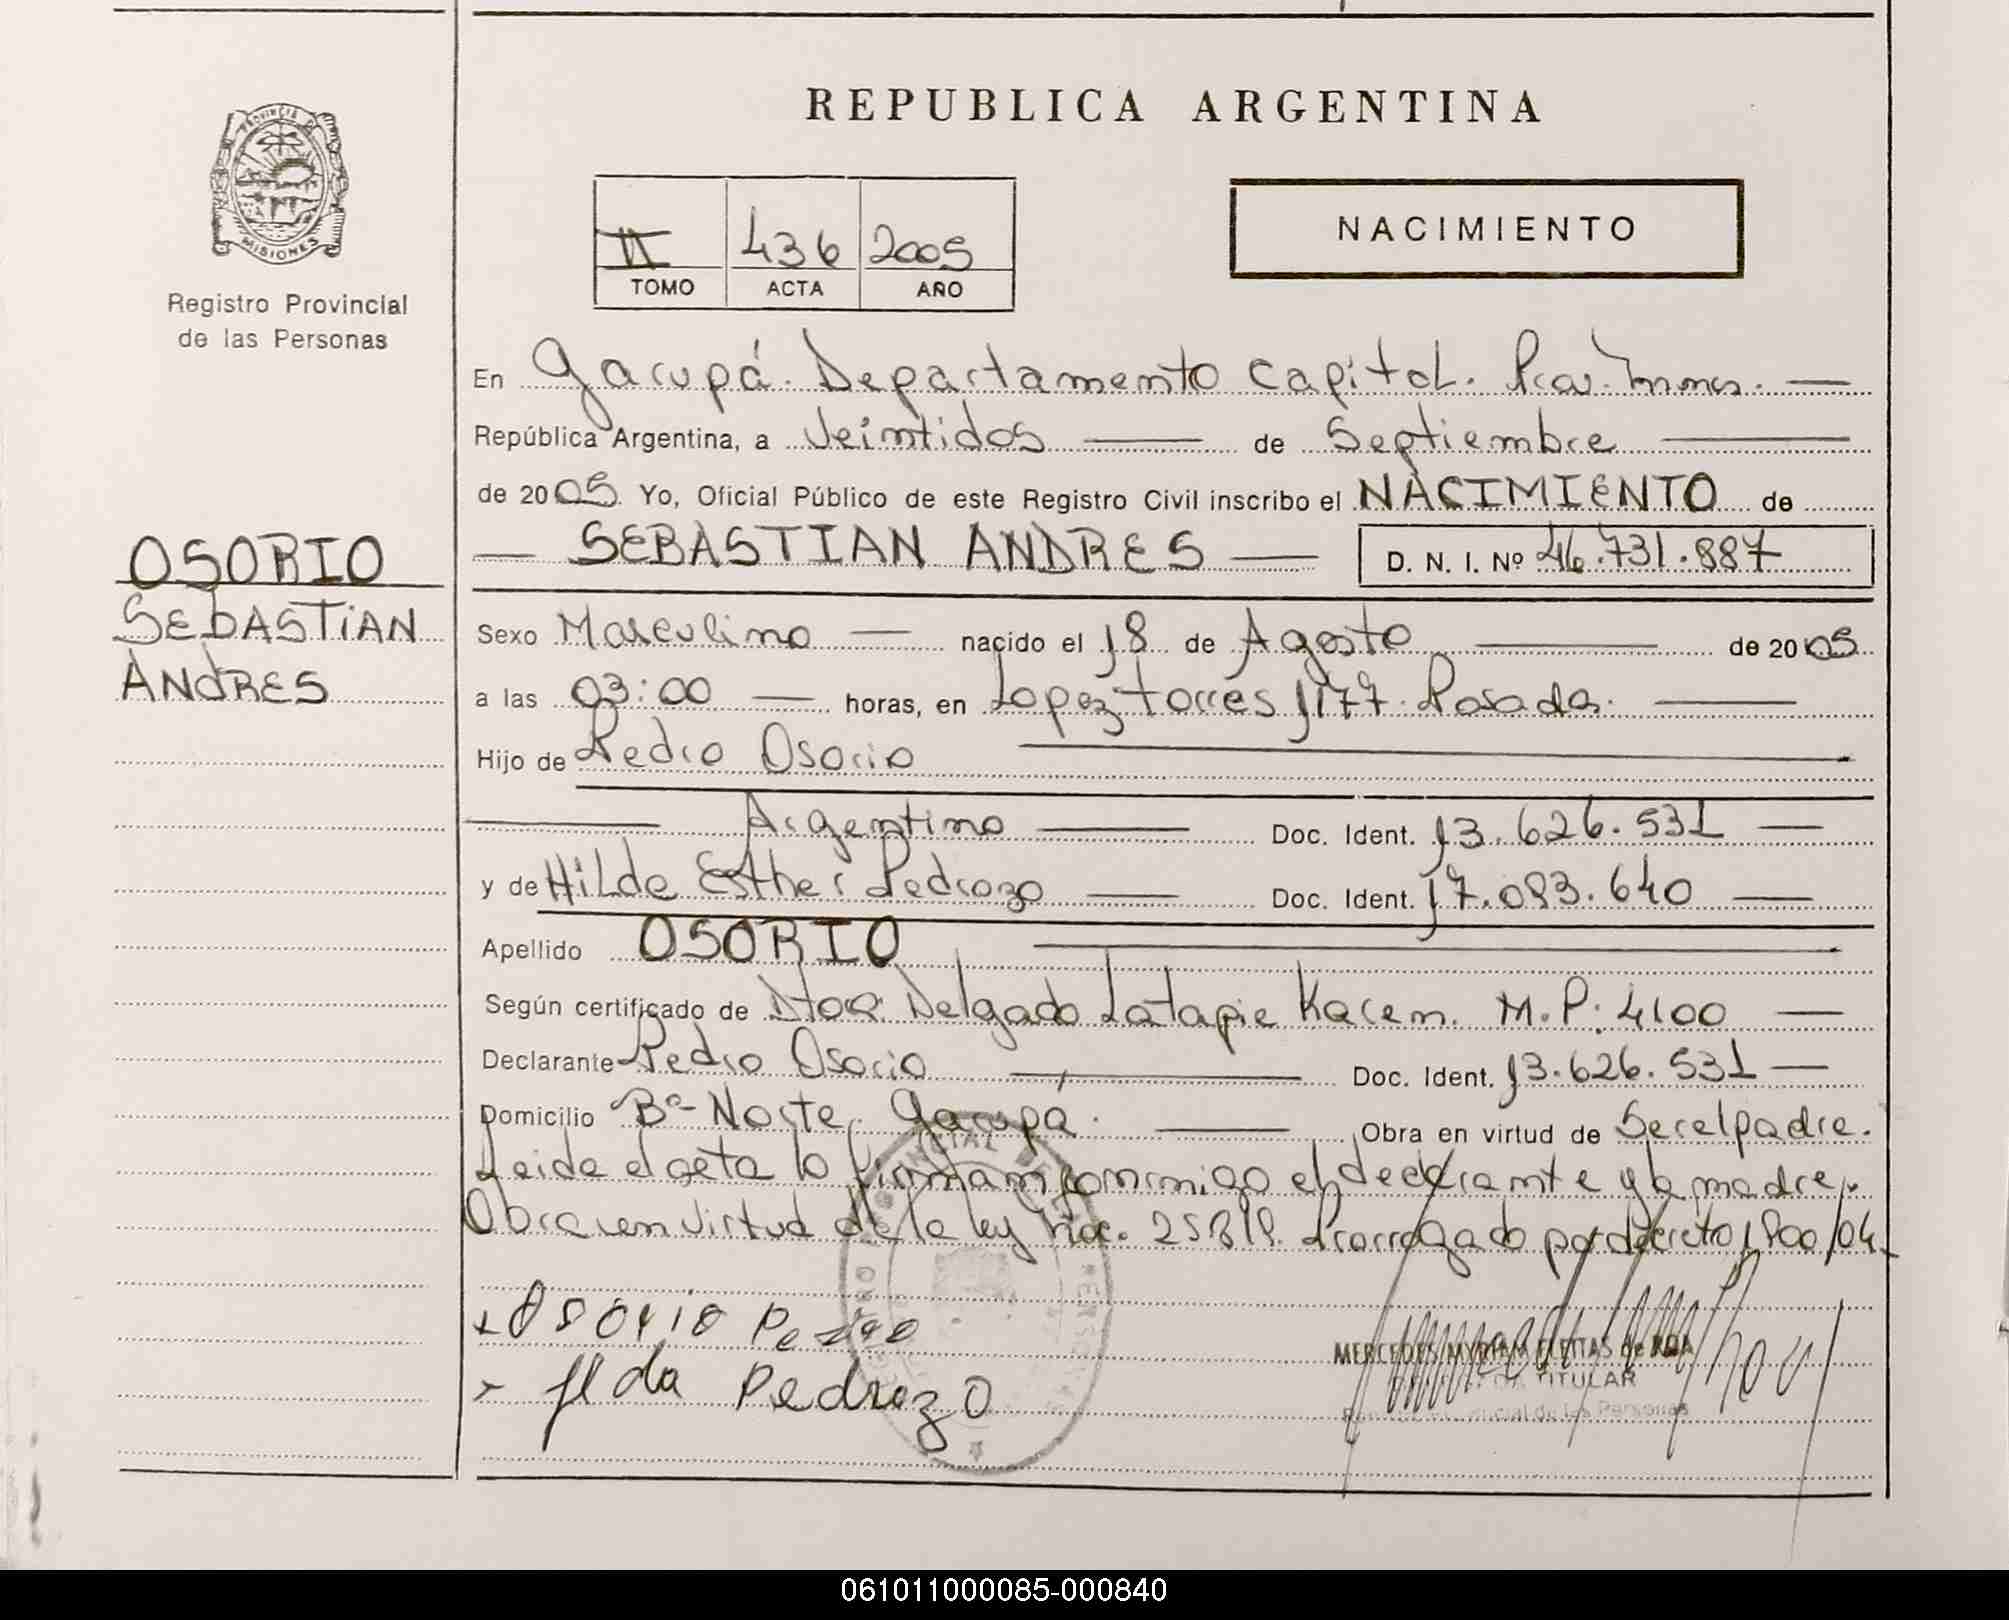 REPUBLICA ARGENTINA
PROVINCIA DE
MISIONES
Registro Provincial
de las Personas
II 436 2005
TOMO ACTA AÑO
NACIMIENTO
En Garupá. Departamento Capital. Pcia. Mnes.
República Argentina, a Veintidos de Septiembre
de 2005. Yo, Oficial Público de este Registro Civil inscribo el NACIMIENTO de
SEBASTIAN ANDRES D. N. I. Nº 46.731.887
OSORIO
SEBASTIAN
ANDRES
Sexo Masculino nacido el 18 de Agosto de 2005
a las 03:00 horas, en Lopez Torres 1177. Posadas.
Hijo de Pedro Osorio
Argentino Doc. Ident. 13.626.531
y de Hilda Esther Pedrozo Doc. Ident. 17.083.640
Apellido OSORIO
Según certificado de Dtor. Delgado Latapie Kacem. M.P: 4100
Declarante Pedro Osorio Doc. Ident. 13.626.531
Domicilio Bº- Norte, Garupá. Obra en virtud de Ser el padre.
Leida el acta lo firman conmigo el declarante y la madre.
Obra en virtud de la ley nac. 25819. Prorrogado por decreto 1800/04
Osorio Pedro
Ilda Pedrozo
MERCEDES MYRIAM FLEITAS de ROA
TITULAR
Provincial de las Personas
061011000085-000840